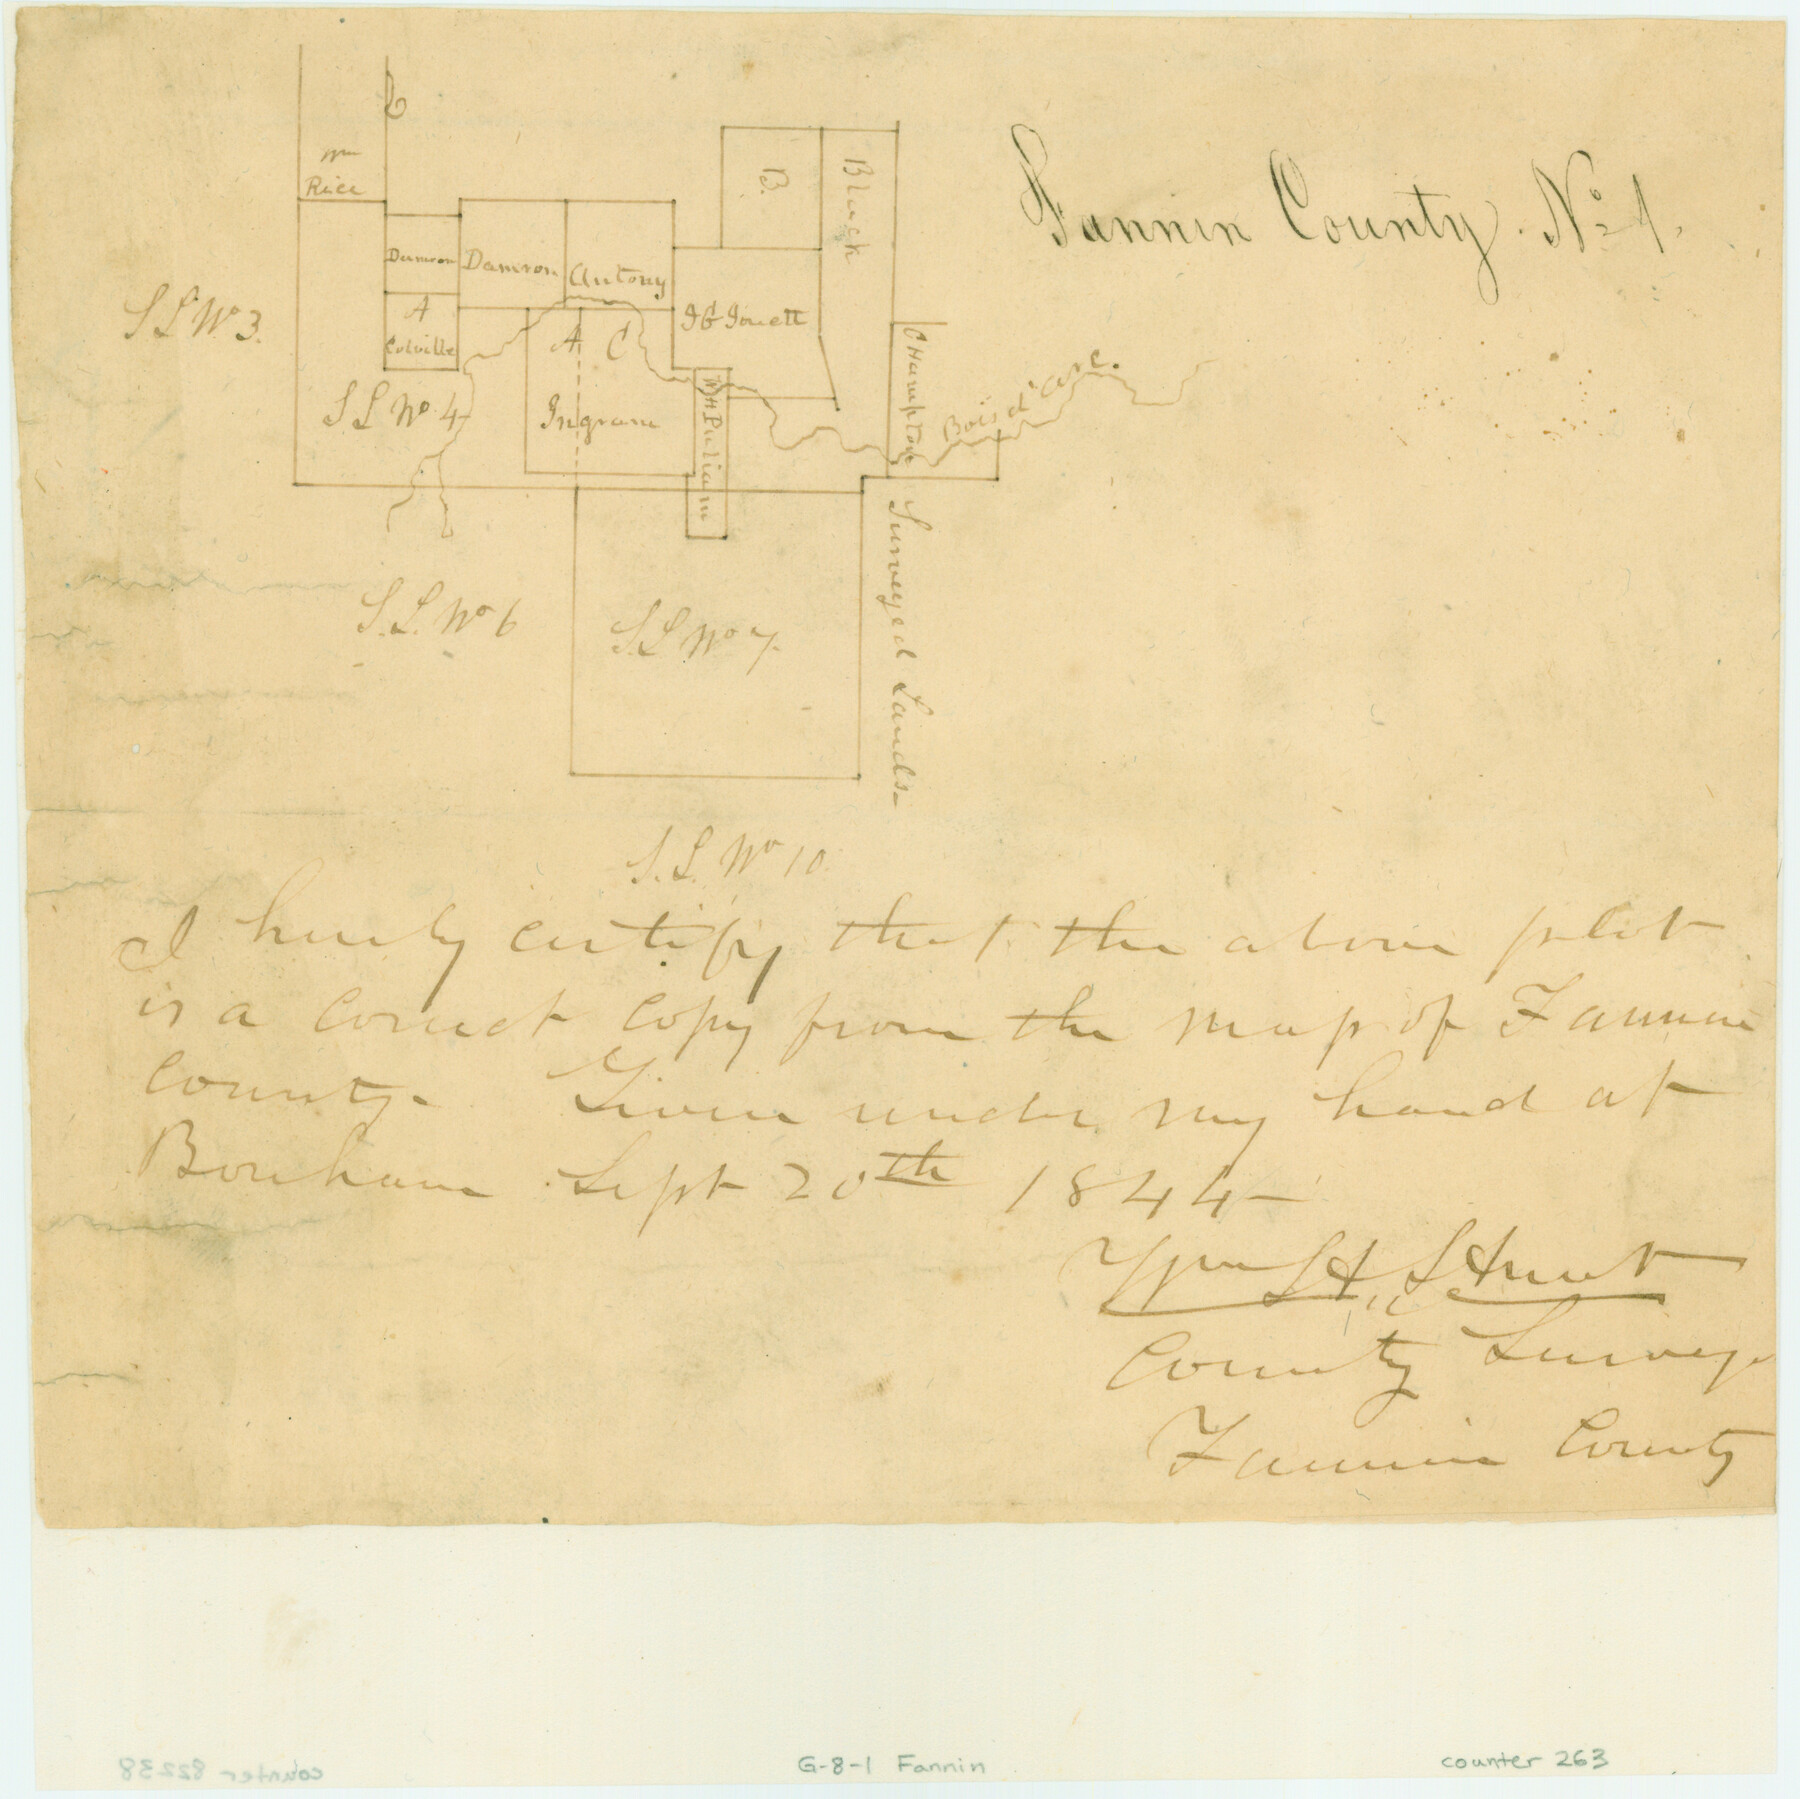 Fannin County. No 1.
Wm
Rice
B.
Black
Damron
Damron
Antony
A
Colville
I G Jouett
S L No 3.
A C
Ingram
S L No 4
W H Pulliam
C Hampton
Bois d'arc.
Surveyed Lands-
S. L. No 6
S L No 7.
S. L. No 10
I hereby certify that the above plot
is a correct copy from the map of Fannin
County- Given under my hand at
Bonham Sept 20th 1844-
Wm H. Hunt
County Surveyor
Fannin County
counter 82238
G-8-1 Fannin
counter 263